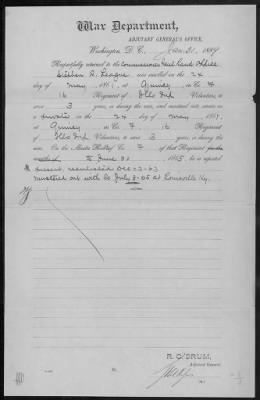 War Department,
ADJUTANT GENERAL'S OFFICE,
Washington, D. C., Jan 31, 1889
Respectfully returned to the Commissioner
was enrolled on the 24
day of May, 1861, at Quincy, in Co. F
16 Regiment of Ills Inf Volunteers, to
serve 3 years, or during the war, and mustered into service as
a private on the 24 day of May, 1861,
at Quincy, in Co. F, 16 Regiment
Ills Inf Volunteers, to serve 3 years, or during the
war. On the Muster Roll of Co. F of that Regiment
to June 30 1865, he is reported
present, reenlisted Dec 23-63
Mustered out with Co July 8-65 at Louisville Ky.
R. C. DRUM,
Adjutant General.